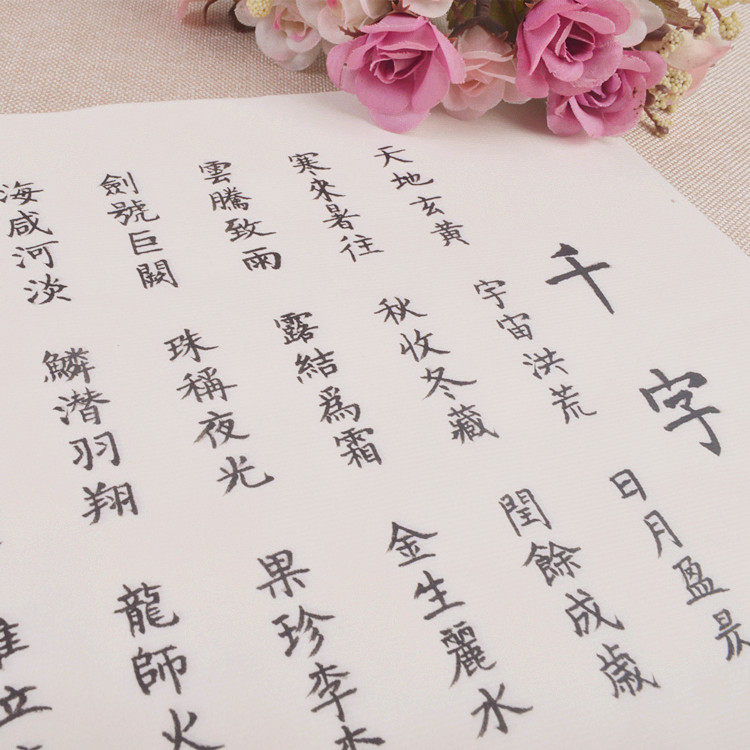 千字
天地玄黃 宇宙洪荒 日月盈昃
寒來暑往 秋收冬藏 閏餘成歲
雲騰致雨 露結爲霜 金生麗水
劍號巨闕 珠稱夜光 果珍李
海咸河淡 鱗潜羽翔 龍師火